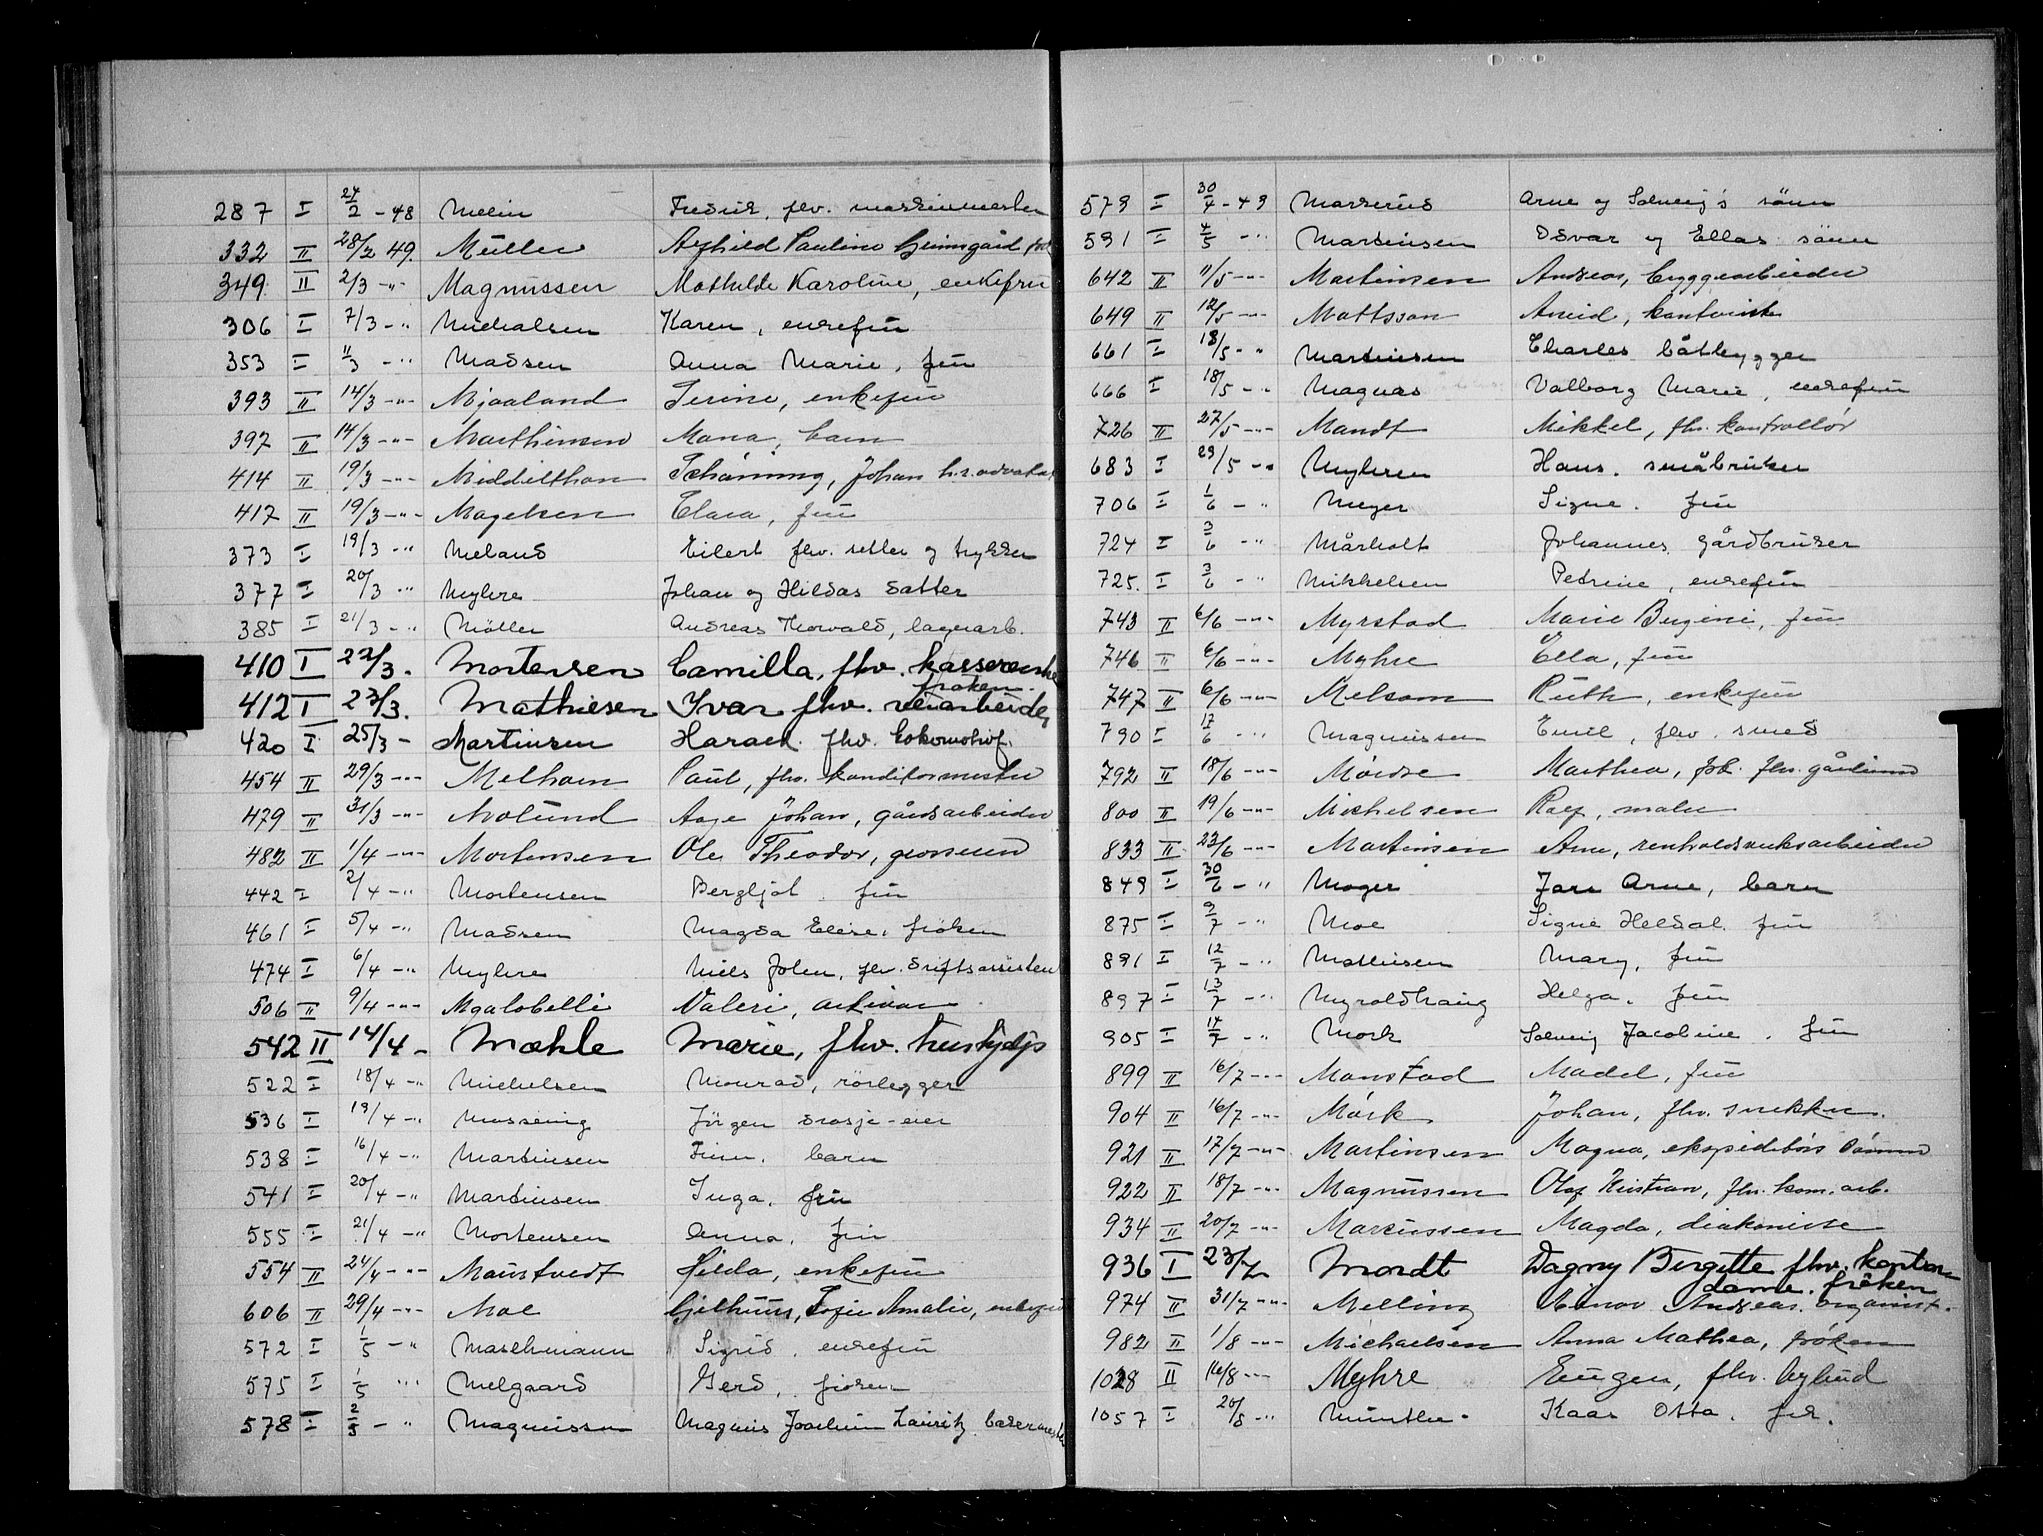 287 I 24/2 - 48 Melin Fredrik, fhv. maskinmester
332 II 28/2 49. Müller Alfhild Pauline Heimgård
349 II 2/3 -"- Magnussen Mathilde Karoline, enkefru
306 I 7/3 -" Michalsen Karen, enkefru
353 I 11/3 -" Madsen Anna Marie, fru
393 II 14/3 -"- Mjaaland Serine, enkefru
397 II 14/3 -"- Marthinsen Mona, barn
414 II 19/3 -"- Middelthon Schöning, Johan h.r.advokat
417 II 19/3 -"- Magelsen Clara, fru
373 I 19/3 -" Meland Eilert fhv. setter og trykker
377 I 20/3 " Myhre Johan og Hildas datter
385 I 21/3 -" Møller Andreas Thorvald, lagerarb.
410 I 22/3. Mortensen Camilla, fhv. kassererske
frøken.
412 I 23/3. Mathiesen Ivar fhv. veiarbeider
420 I 25/3 - Martinsen Harald. fhv. lokomotivf.
454 II 29/3 -"- Melhorn Paul, fhv. konditormester
479 II 31/3 -"- Molund Aage Johan, gårdsarbeider
482 II 1/4 -"- Mortensen Ole Theodor, grosserer
442 I 2/4 -" Mortensen Bergljot fru
461 I 5/4 -" Madsen Magda Elise, frøken
474 I 6/4 -" Myhre Niels John, fhv. driftsassistent
506 II 9/4 -"- Mgalobelli Valeri, artivar
542 II 14/4 - Mæhle Marie, fhv. hushjelp
522 I 18/4 -" Michelsen Monrad, rørlegger
536 I 19/4 -" Messenig Jørgen drosje-eier
538 I 16/4 -" Martinsen Finn, barn
541 I 20/4 -" Martinsen Inga, fru
555 I 21/4 -" Mortensen Anna, fru
554 II 24/4 -"- Maustvedt Hilda, enkefru
606 II 29/4 -"- Moe Gjelhuus, Sofie Amalie, enkefru
572 I 1/5 -" Maschmann Sigrid, enkefru
575 I 1/5 " Melgaard Gerd, frøken
578 I 2/5 - " Magnussen Magnus Joachim Lauritz bakermester
579 I 30/4 - 49 Markerud Arne og Solveig's sønn
591 I 4/5 -" Martinsen Odvar og Ellas sønn
642 II 11/5 -"- Martinsen Andreas, bryggearbeider
649 II 12/5 -"- Mattsson Arvid, kontorist
661 I 18/5 - " Martinsen Charles båtbygger
666 I 18/5 -" Magnus Valborg Marie, enkefru
726 II 27/5 -"- Mandt Mikkel, fhv. kontrollør
683 I 29/5 -" Myhren Hans. småbruker
706 I 1/6 - " Meyer Signe. fru
724 I 3/6 -" Mårholt Johannes gårdbruker
725. I 3/6 - " Mikkelsen Petrine, enkefru
743 II 6/6 -"- Myrstad Marie Bergine, fru
746 II 6/6 -"- Myhre Ella, fru
747 II 6/6 -"- Melsom Ruth, enkefru
790 I 17/6 -" Magnussen Emil, fhv. smed
792 II 18/6 -"- Mørdre Marthea, frk. fhv.
800 II 19/6 -"- Michelsen Rolf, maler
833 II 23/6 -"- Martinsen Arne, renholdsverksarbeider
849 I 30/6 - " Moger Jan Arne, barn
875 I 9/7 -" Moe Signe Heldal. fru
891 I 12/7 - " Mathisen Mary, fru
897 I 13/7 -" Myroldhaug Helga. fru
905 I 14/7 -" Mork Solveig Jacobine. fru
899 II 16/7 -"- Monstad Madel, fru
904 II 16/7 -"- Mörk Johan, fhv. snekker.
921 II 17/7 -"- Martinsen Magna, ekspeditørs
922 II 18/7 -"- Magnussen Olaf Kristian, fhv. kom. arb.
934 II 20/7 -"- Marcussen Magda, diakonisse
936 I 23/7 Mordt Dagny Birgitte fhv. kontor
dame. frøken
974 II 31/7 -"- Melling Andreas. organist.
982 II 1/8 -"- Michaelsen Anna Mathea, frøken
1028 II 16/8 -"- Myhre Eugen, fhv. bybud
1057 I 20/8 -" Münther. Kaas Otta. frk.